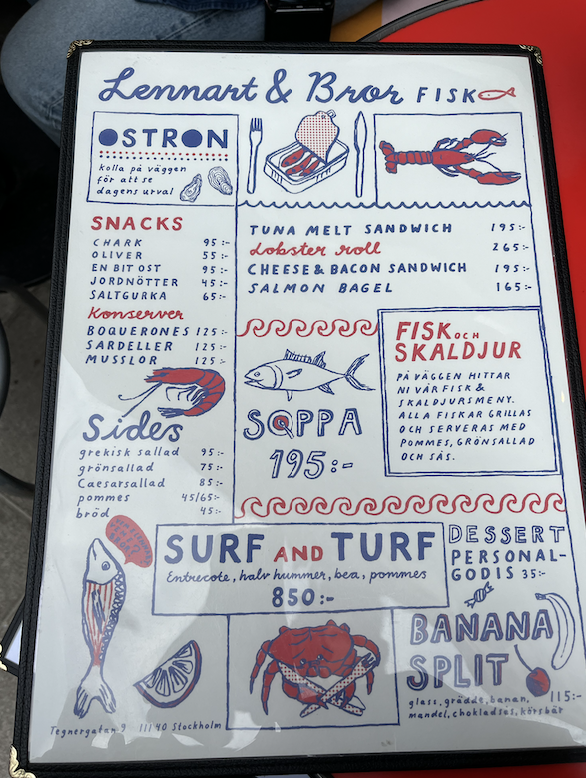 Lennart & Bror FISK
OSTRON
kolla på väggen
för att se
dagens urval
SNACKS
CHARK 95:-
OLIVER 55:-
EN BIT OST 95:-
JORDNÖTTER 45:-
SALTGURKA 65:-
Konserver
BOQUERONES 125:-
SARDELLER 125:-
MUSSLOR 125:-
Sides
grekisk sallad 95:-
grönsallad 75:-
Caesarsallad 85:-
pommes 45/65:-
bröd 45:-
TUNA MELT SANDWICH 195:-
Lobster roll 265:-
CHEESE & BACON SANDWICH 195:-
SALMON BAGEL 165:-
SOPPA
195:-
FISK OCH
SKALDJUR
PÅ VÄGGEN HITTAR
NI VÅR FISK &
SKALDJURSMENY.
ALLA FISKAR GRILLAS
OCH SERVERAS MED
POMMES, GRÖNSALLAD
OCH SÅS.
SURF AND TURF
Entrecote, halv hummer, bea, pommes
850:-
DESSERT
PERSONAL-
GODIS 35:-
BANANA
SPLIT
glass, grädde, banan, 115:-
mandel, chokladsås, körsbär
Tegnergatan 9 11140 Stockholm